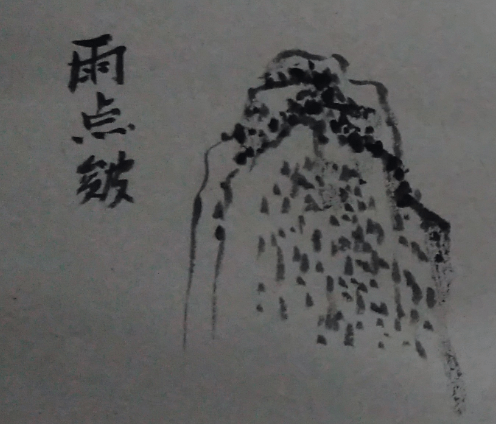 雨点皴